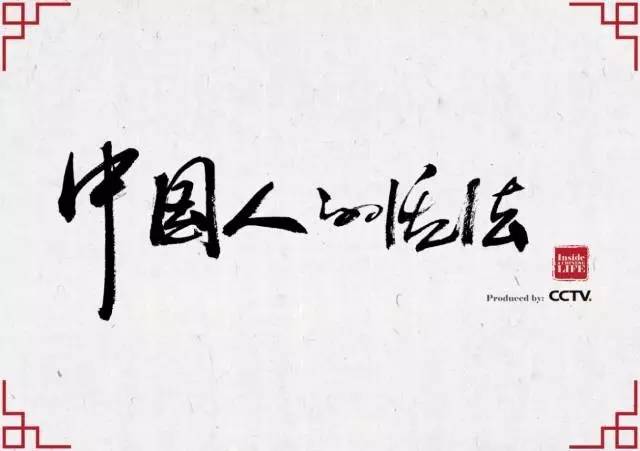 中国人的活法
Inside
A CHINESE
LIFE
Produced by: CCTV.